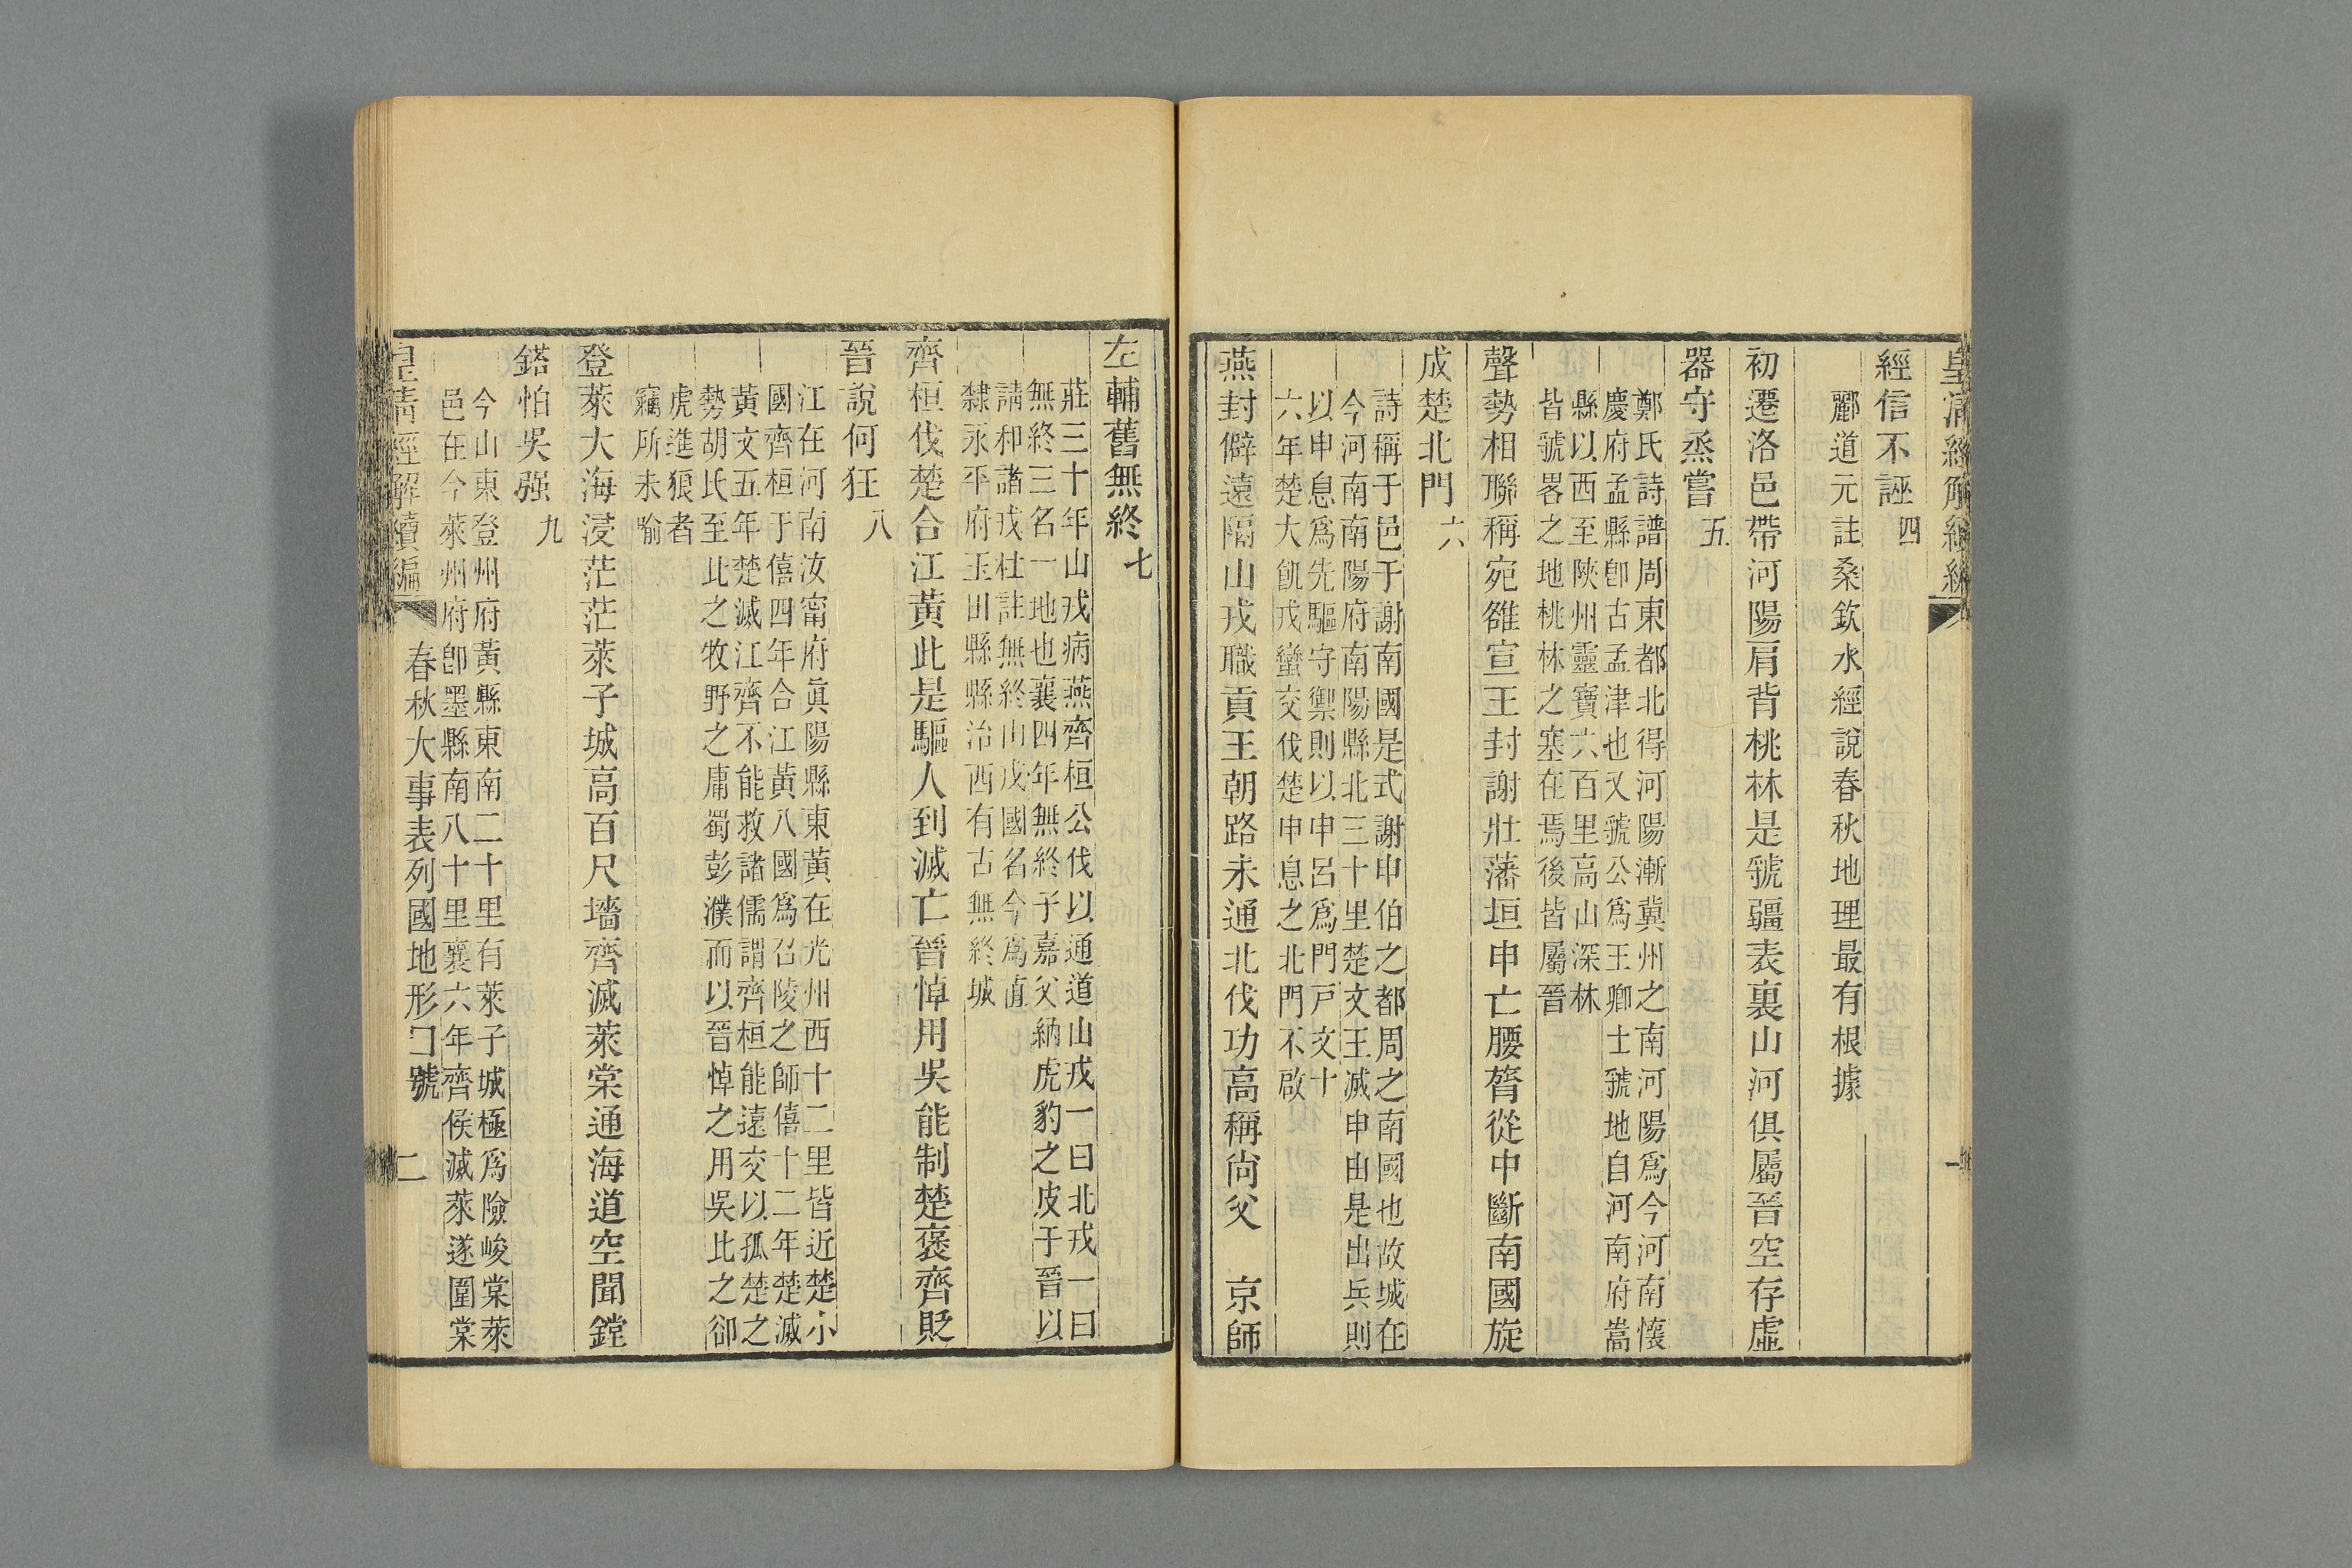 經信不誣四
酈道元註桑欽水經說春秋地理最有根據
初遷洛邑帶河陽肩背桃林是虢疆表裏山河俱屬晉空存虛
器守烝嘗五
鄭氏詩譜周東都北得河陽漸冀州之南河陽爲今河南懷
慶府孟縣卽古孟津也又虢公爲王卿士虢地自河南府嵩
縣以西至陝州靈寶六百里高山深林
皆虢畧之地桃林之塞在焉後皆屬晉
聲勢相聯稱宛雒宣王封謝壯藩垣申亡腰膂從中斷南國旋
成楚北門六
詩稱于邑于謝南國是式謝申伯之都周之南國也故城在
今河南南陽府南陽縣北三十里楚文王滅申由是出兵則
以申息爲先驅守禦則以申呂爲門戸文十
六年楚大飢戎蠻交伐楚申息之北門不啟
燕封僻遠隔山戎職貢王朝路未通北伐功高稱尙父　京師
左輔舊無終七
莊三十年山戎病燕齊桓公伐以通道山戎一曰北戎一曰
無終三名一地也襄四年無終子嘉父納虎豹之皮于晉以
請和諸戎杜註無終山戎國名今爲直
隸永平府玉田縣縣治西有古無終城
齊桓伐楚合江黃此是驅人到滅亡晉悼用吳能制楚褒齊貶
晉說何狂八
江在河南汝甯府眞陽縣東黃在光州西十二里皆近楚小
國齊桓于僖四年合江黃八國爲召陵之師僖十二年楚滅
黃文五年楚滅江齊不能救諸儒謂齊桓能遠交以孤楚之
勢胡氏至此之牧野之庸蜀彭濮而以晉悼之用吳此之卻
虎進狼者
竊所未喻
登萊大海浸茫茫萊子城高百尺墻齊滅萊棠通海道空聞鏜
鎝怕吳强九
今山東登州府黃縣東南二十里有萊子城極爲險峻棠萊
邑在今萊州府卽墨縣南八十里襄六年齊侯滅萊遂圍棠
皇淸經解續編　春秋大事表列國地形口號　二